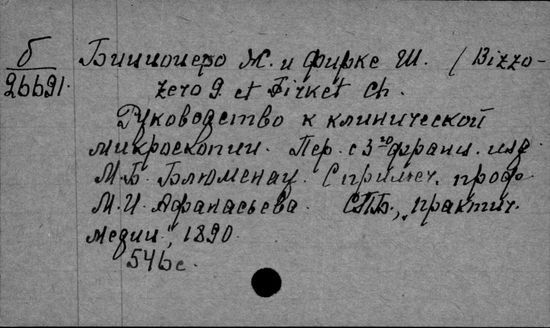 б
26691.
Биццоцеро Ж. и Фирке Ш. (Bizzo-
zero J. et Firket Ch.
Руководство к клинической
микроскопии. Пер. с 3го франц. изд.
М.Б. Блюменау. С примеч. проф.
М.И. Афанасьева. СПБ., "Практич.
медиц.", 1890.
546 с.